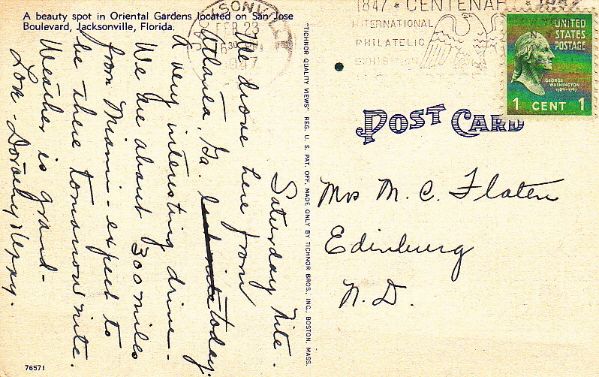 A beauty spot in Oriental Gardens located on San Jose
Boulevard, Jacksonville, Florida.
Saturday Nite.
We drove here from
Atlanta, Ga. today.
A very interesting drive -
We are about 300 miles
from Miami - expect to
be there tomorrow nite.
Weather is grand -
Love - Dorothy & Gerry.
76571
"TICHNOR QUALITY VIEWS" REG. U. S. PAT. OFF. MADE ONLY BY TICHNOR BROS., INC., BOSTON, MASS.
FEB 23
1947
1847 • CENTENARY
INTERNATIONAL
PHILATELIC
EXHIBITION
UNITED
STATES
POSTAGE
GEORGE
WASHINGTON
1 CENT 1
POST CARD
Mrs M. C. Flaten
Edinburg
N. D.